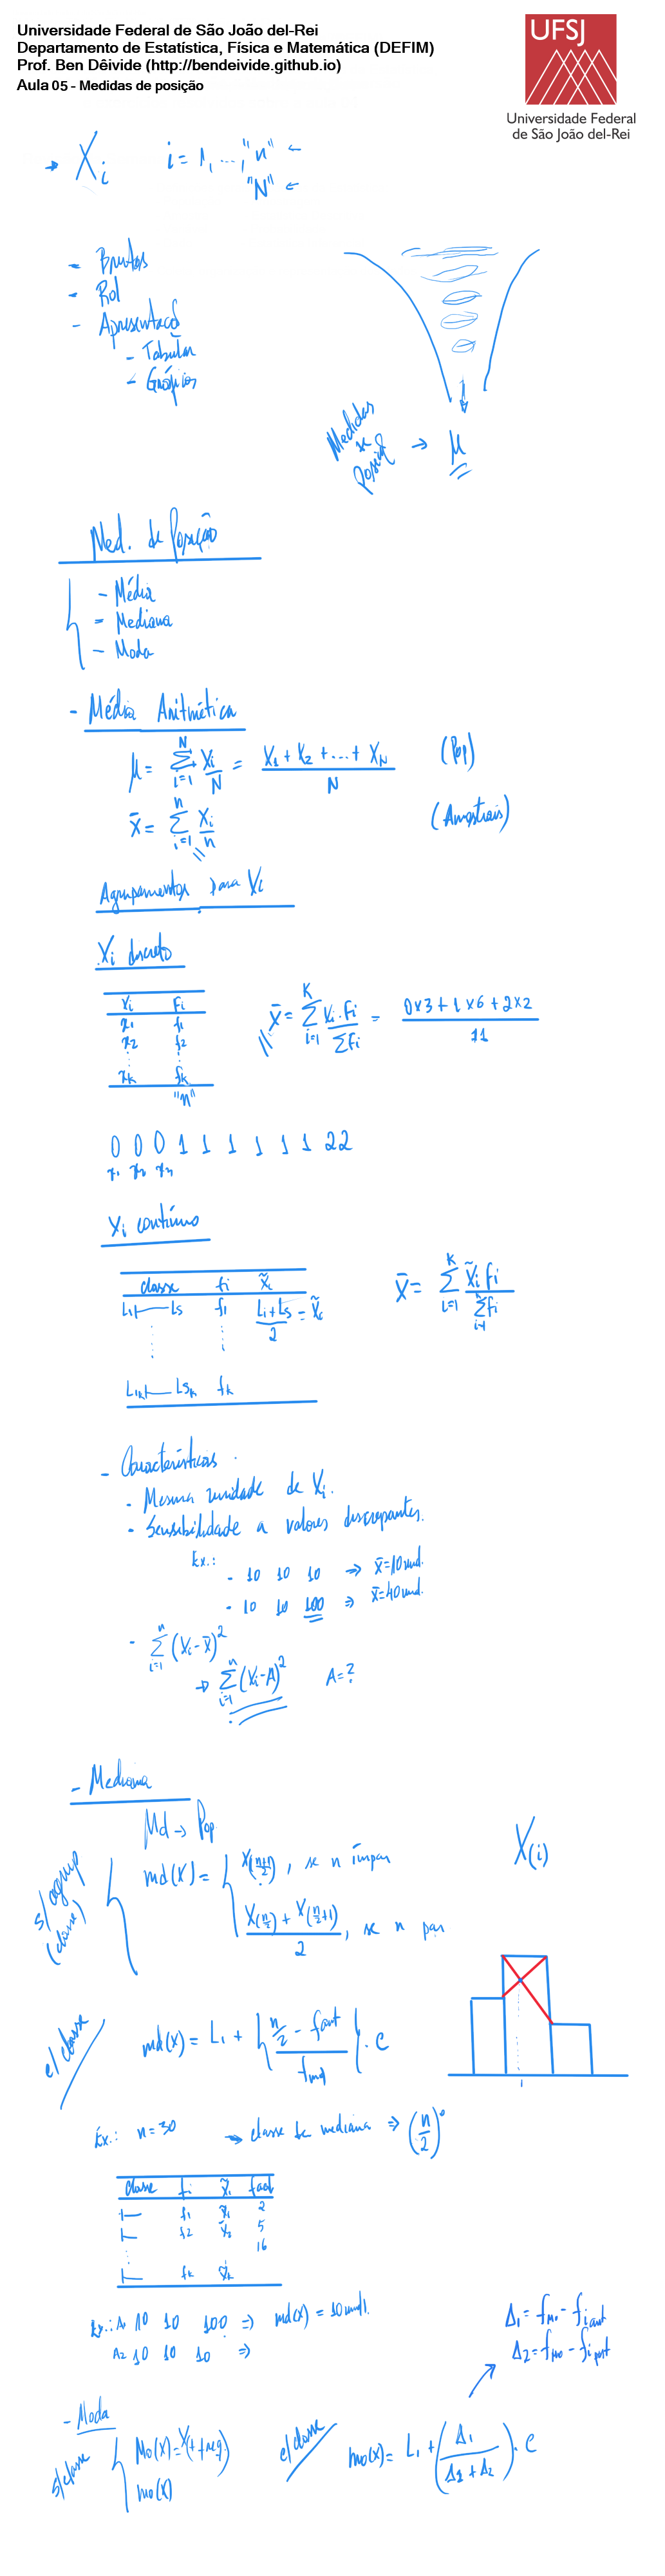 Universidade Federal de São João del-Rei
Departamento de Estatística, Física e Matemática (DEFIM)
Prof. Ben Dêivide (http://bendeivide.github.io)
Aula 05 - Medidas de posição
UFSJ
Universidade Federal
de São João del-Rei
→ Xi i = 1, ..., "n" ←
"N" ←
- Brutos
- Rol
- Apresentação
- Tabular
- Gráficos
Medidas de posição → μ
Med. de Posição
- Média
- Mediana
- Moda
- Média Aritmética
μ = Σ_{i=1}^{N} Xi/N = (X1 + X2 + ... + XN)/N (Pop)
X̄ = Σ_{i=1}^{n} Xi/n (Amostrais)
Agrupamentos para Xi
Xi discreto
Xi Fi
x1 f1
x2 f2
⋮ ⋮
xk fk
"n"
X̄ = Σ_{i=1}^{K} Xi.Fi/ΣFi = (0x3 + 1x6 + 2x2)/11
0 0 0 1 1 1 1 1 1 2 2
x1 x2 x3
Xi contínuo
classe fi X̃i
Li1 |— Ls f1 (Li + Ls)/2 = X̃i
⋮ ⋮
Lik |— Lsk fk
X̄ = Σ_{i=1}^{k} X̃i fi/Σ_{i=1} fi
- Características.
- Mesma unidade de Xi.
- Sensibilidade a valores discrepantes.
Ex.:
- 10 10 10 ⇒ x̄=10und.
- 10 10 100 ⇒ x̄=40und.
- Σ_{i=1}^{n} (Xi - x̄)²
→ Σ_{i=1}^{n} (Xi - A)² A=?
- Mediana
Md → Pop.
s/ agrup (classe)
md(X) = X((n+1)/2), se n ímpar
(X(n/2) + X(n/2+1))/2, se n par
X(i)
c/ classe
md(x) = Li + {(n/2 - fant)/fmd}.c
Ex.: n=30 → classe de mediana ⇒ (n/2)º
classe fi X̃i fac↓
|— f1 X̃1 2
|— f2 X̃2 5
⋮ 16
|— fk X̃k
Ex.: A1 10 10 100 ⇒ md(x) = 10und.
A2 10 10 10 ⇒
Δ1 = fMo - fi ant
Δ2 = fMo - fi post
- Moda
s/classe
Mo(X) = X(+ freq)
mo(X)
c/ classe
mo(X) = Li + (Δ1/(Δ1 + Δ2)).c